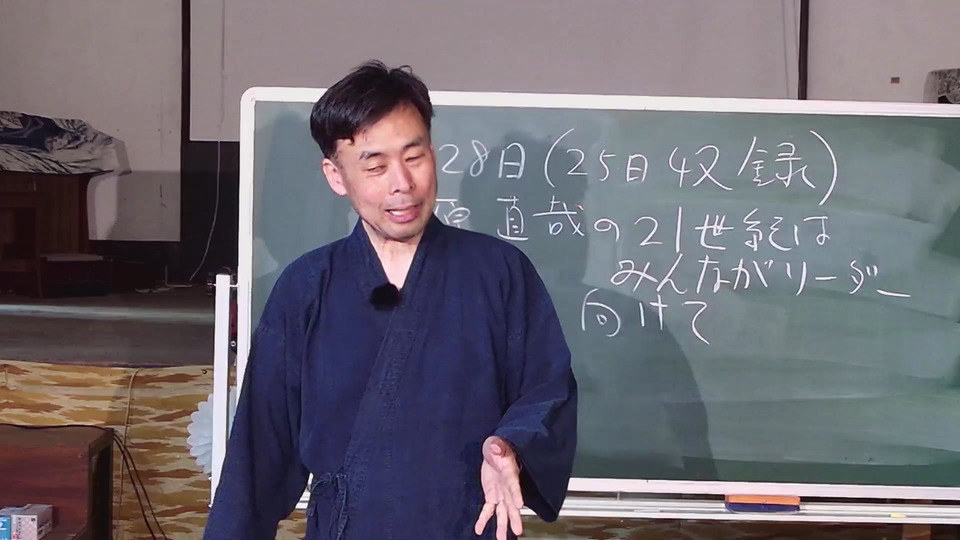 28日(25日収録)
原直哉の21世紀は
みんながリーダー
向けて